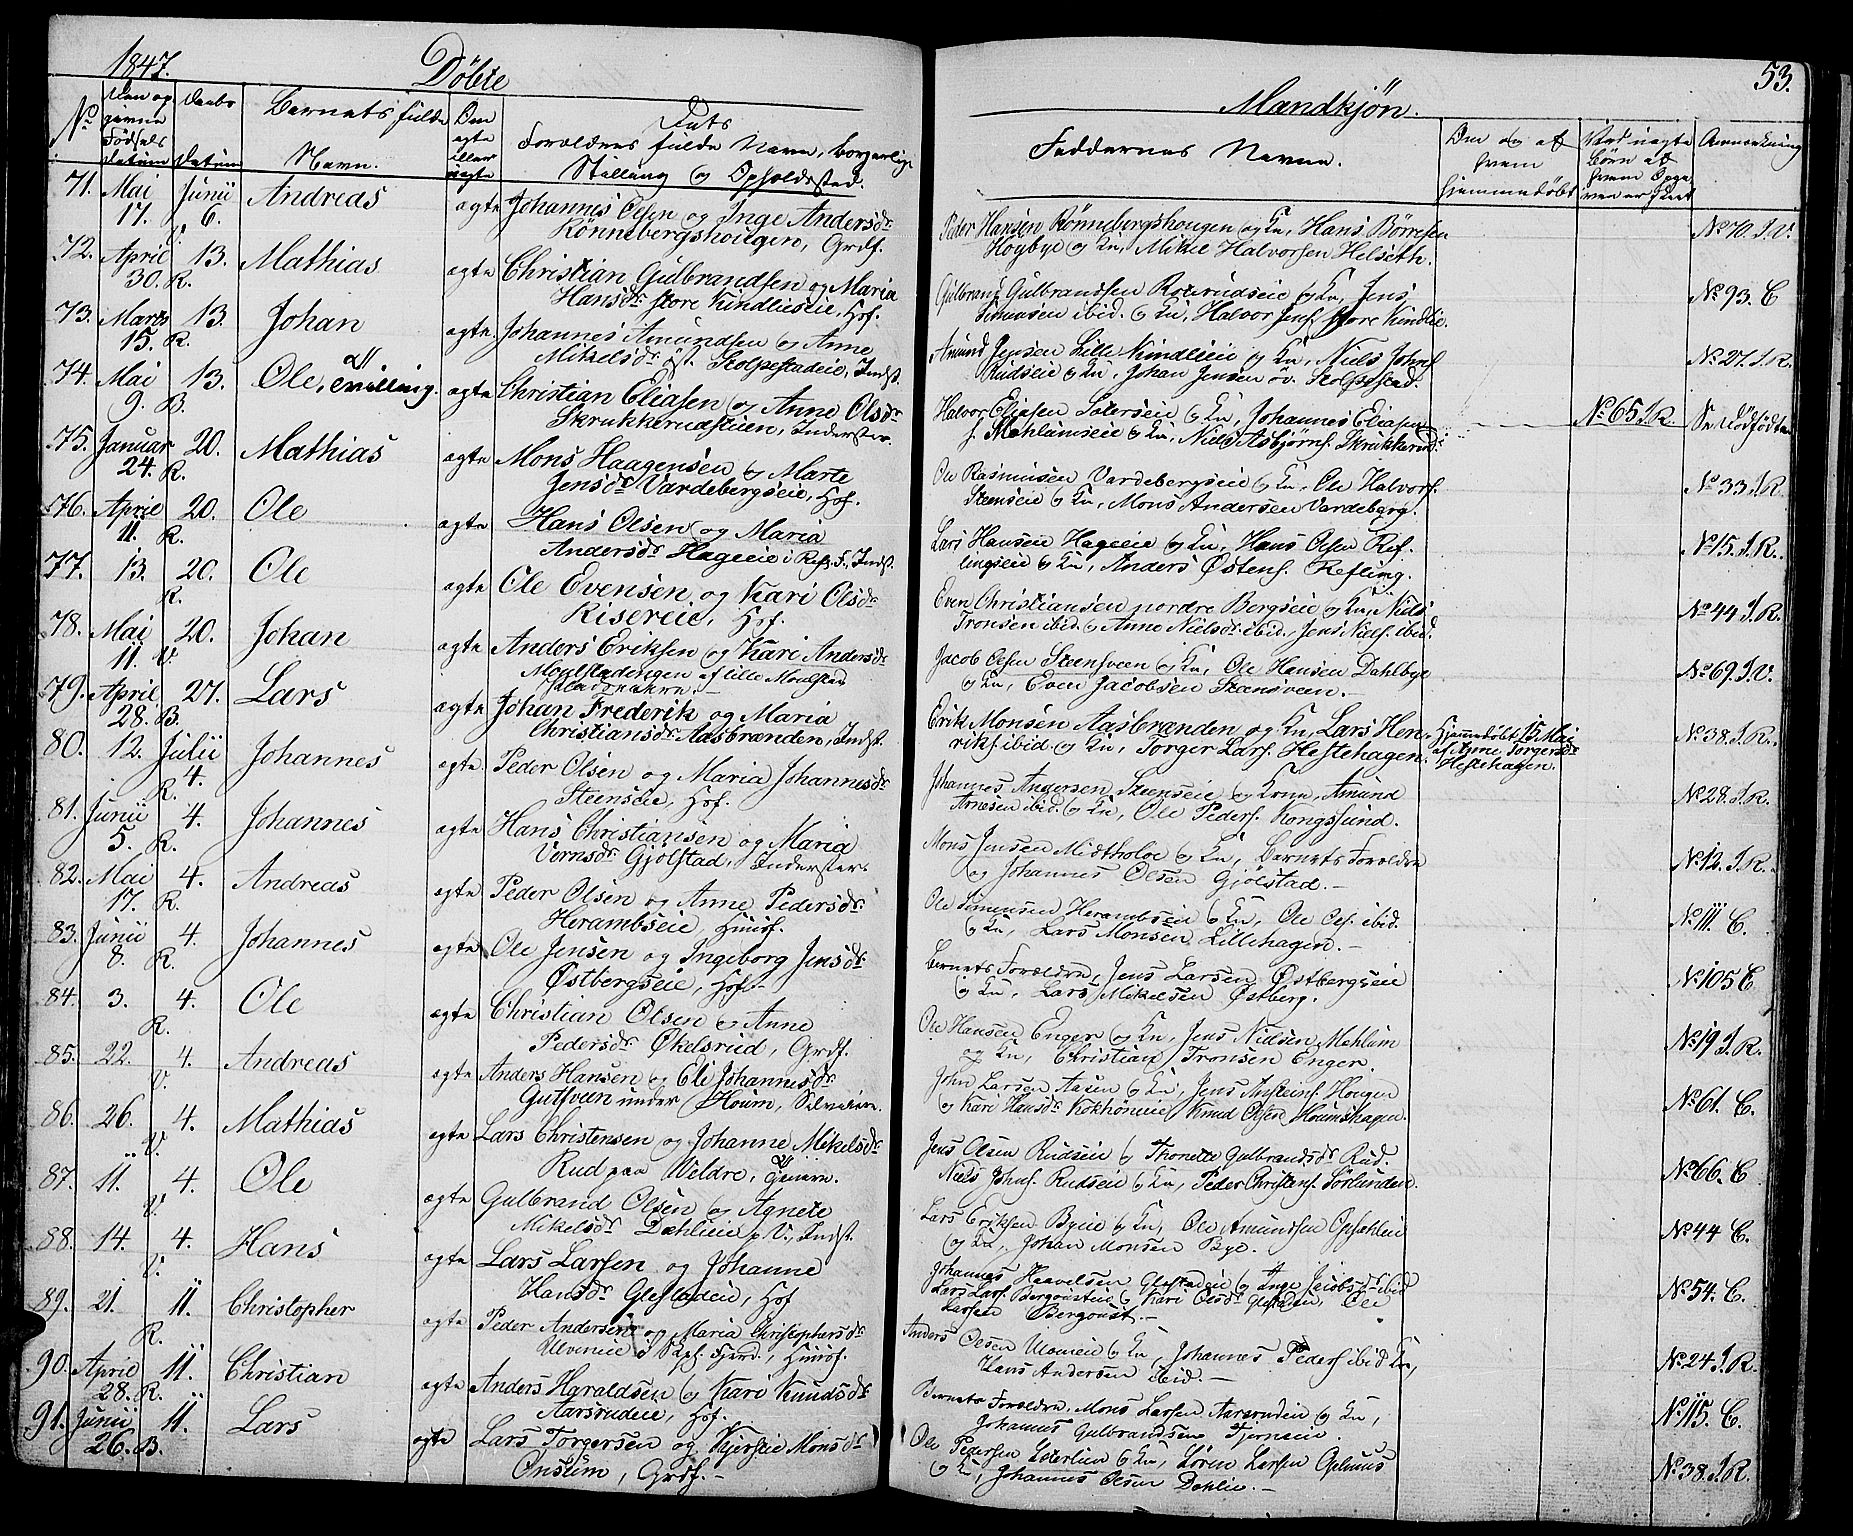 1847.
Døbte
Mandkjøn.
53.
No
Den op-
givne
Fødsels
datum
Daabs
datum
Barnets fulde
Navn.
Om
ægte
eller
uægte
Dets
Forældres fulde Navn, borgerlige
Stilling og Opholdssted.
Faddernes Navne.
Om og af
hvem
hjemmedøbt
Anmærkning
71. Mai 17. Junii 6. V. Andreas
ægte Johannes Olsen og Inge Andersdr
Rønnebergshougen, Grdf.
Peder Hansen Rønneborgshougen og Kn, Hans Børresen
Høybye og Kn, Mikkel Halvorsen Helseth.
No 70. J. V.
72. April 30. 13. R. Mathias
ægte Christian Gulbrandsen og Maria
Hansdr store Kindlieeie, Hof.
Gulbrand Gulbrandsen Roterudseie og Kn, Jens
Simensen ibid. og Kn, Halvor Jens. store Kindlie.
No 93. C
73. Marts 15. 13. R. Johan
ægte. Johannes Amundsen og Anne
Mikelsdr øst. Skolpestadeie, Indst.
Amund Jensen Lille Kindlieie og Kn, Niels Johns.
Rudseie og Kn, Johan Jensen øv. Skolpestad.
No 27. J. R.
74. Mai 9. 13. B. Ole, tvilling.
ægte Christian Eliasen og Anne Olsdr
Skrukkerudstuen, Inderster.
Halvor Eliasen Sæterseie og Kn, Johannes Eliasen
s. Mæhlumseie og Kn, Niels Asbjørns. Skrukkerud.
No 65. J. R. Se Dødfødte
75. Januar 24. 20. R. Mathias
ægte Mons Haagensen og Marte
Jensdr Vardebergseie, Hof.
Ole Rasmusen Vardebergseie og Kn, Ole Halvors.
Steenseie og Kn, Mons Andersen Vardeberg.
No 33. J. R.
76. April 11. 20. R. Ole
ægte Hans Olsen og Maria
Andersdr Hageeie i Refs. F., Indst.
Lars Hansen Hageeie og Kn, Hans Olsen Ref-
lingseie og Kn, Anders Østens. Refling.
No 15. J. R.
77. 13. 20. R. Ole
ægte Ole Evensen og Kari Olsdr
Risereie, Hof.
Even Christiansen nordre Bergseie og Kn, Niels
Tronsen ibid. og Anne Nielsdr ibid., Jens Niels. ibid.
No 44. J. R.
78. Mai 11. 20. V. Johan
ægte Anders Eriksen og Kari Andersdr
Moulstadengen af lille Moulstad
Jacob Olsen Steensveen og Kn, Ole Hansen Dahlbye
og Kn, Even Jacobsen Stensveen.
No 69. J. V.
79. April 28. 27. B. Lars
ægte Johan Frederik og Maria
Christiansdr Aasbranden, Indst.
Erik Monsen Aasbranden og Kn, Lars Hen-
riks. ibid. og Kn, Torger Lars. Hestehagen.
Hjemmedøbt 15. Mai
af Agnie Torgersdr
Hestehagen.
No 38. J. R.
80. 12. Julii 4. R. Johannes
ægte. Peder Olsen og Maria Johannesdr
Steenseie, Hof.
Johannes Andersen Steenseie og Kone, Amund
Arnesen ibid. og Kn, Ole Peders. Kongssund.
No 28. J. R.
81. Junii 5. 4. R. Johannes
ægte Hans Christiansen og Maria
Vernsdr Gjølstad, Inderster.
Mons Jensen Midtholoe og Kn, Barnets Forældre
og Johannes Olsen Gjølstad.
No 12. J. R.
82. Mai 17. 4. R. Andreas
ægte Peder Olsen og Anne Pedersdr
Herambseie, Huusf.
Ole Simensen Herambseie og Kn, Ole Ols. ibid.
og Kn, Lars Monsen Lillehagen.
No 111. C.
83. Junii 8. 4. R. Johannes
ægte Ole Jensen og Ingeborg Jensdr
Østbergseie, Hof.
Barnets Forældre, Jens Larsen Østbergseie
og Kn, Lars Mikelsen Østberg.
No 105 C.
84. 3. 4. R. Ole
ægte Christian Olsen og Anne
Pedersdr Økelsrud, Grdf.
Ole Hansen Enger og Kn, Jens Nielsen Mæhlum
og Kn, Christian Tronsen Enger.
No 19 J. R.
85. 22. 4. V. Andreas
ægte Anders Hansen og Ele Johannesdr
Gutsveen under Houm, Selveier.
John Larsen Aasen og Kn, Jens Ansteins. Hougen
og Kari Hansdr Kokhøneie, Knud Olsen Houmshagen.
No 61. C.
86. 26. 4. V. Mathias
ægte Lars Christensen og Johanne Mikelsdr
Rud paa Veldre,
Jens Olsen Rudseie og Thonette Gulbrandsdr Rud.
Niels Johns. Rudseie og Kn, Peder Christens. Sørlunden.
No 66. C
87. 11. 4. V. Ole
ægte Gulbrand Olsen og Agnete
Mikelsdr Dæhlieie p. V., Indst.
Lars Eriksen Byeie og Kn, Ole Amundsen Opsahleie
og Kn, Johan Monsen Bye.
No 44 C.
88. 14. 4. V. Hans
ægte Lars Larsen og Johanne
Hansdr Glestadeie, Hof
Johannes Haavelsen Glestadeie og Inge Jacobsdr ibid
Lars Lars. Bergqvisteie og Kari Olsdr Glestadeie, Ole
Larsen Bergqvist.
No 54. C.
89. 21. 11. R. Christopher
ægte Peder Andersen og Maria Christophersdr
Ulveneie i Skps. Fjerd., Huusf.
Anders Olsen Uloneie og Kn, Johannes Peders. ibid Kn,
Hans Andersen ibid.
No 24 J. R.
90. April 28. 11. R. Christian
ægte Anders Haraldsen og Kari Knudsdr
Aarsrudeie, Hof.
Barnets Forældre, Mons Larsen Aarsrudeie og Kn,
Johannes Gulbrandsen Tjerneeie.
No 115. C.
91. Junii 26. 11. B. Lars
ægte Lars Torgersen og Kjerstie Monsdr
Onslum, Grdf.
Ole Pedersen Ederlien og Kn, Søren Larsen Gælmus
og Kn, Johannes Olsen Dahlie.
No 38. J. R.